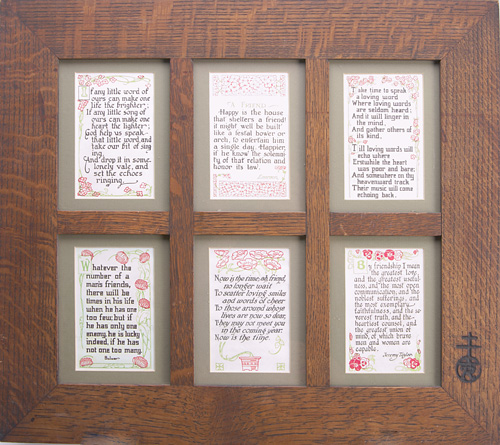 If any little word of
ours can make one
life the brighter;
If any little song of
ours can make one
heart the lighter;
God help us speak
that little word, and
take our bit of sing
ing,
And drop it in some
lonely vale, and
set the echoes
ringing
A Friend
Happy is the house
that shelters a friend!
it might well be built
like a festal bower or
arch, to entertain him
a single day. Happier,
if he know the solemn
ity of that relation and
honor its law.
Emerson
Take time to speak
a loving word
Where loving words
are seldom heard;
And it will linger in
the mind,
And gather others of
its kind,
Till loving words will
echo where
Erstwhile the heart
was poor and bare;
And somewhere on thy
heavenward track
Their music will come
echoing back.
Whatever the
number of a
man's friends,
there will be
times in his life
when he has one
too few; but if
he has only one
enemy, he is lucky
indeed, if he has
not one too many.
Bulwer
Now is the time, oh, friend,
no longer wait
To scatter loving smiles
and words of cheer
To those around whose
lives are now so dear,
They may not meet you
in the coming year.
Now is the time.
By friendship I mean
the greatest love,
and the greatest useful
ness, and the most open
communication, and the
noblest sufferings, and
the most exemplary
faithfulness, and the se
verest truth, and the
heartiest counsel, and
the greatest union of
mind, of which brave
men and women are
capable.
Jeremy Taylor